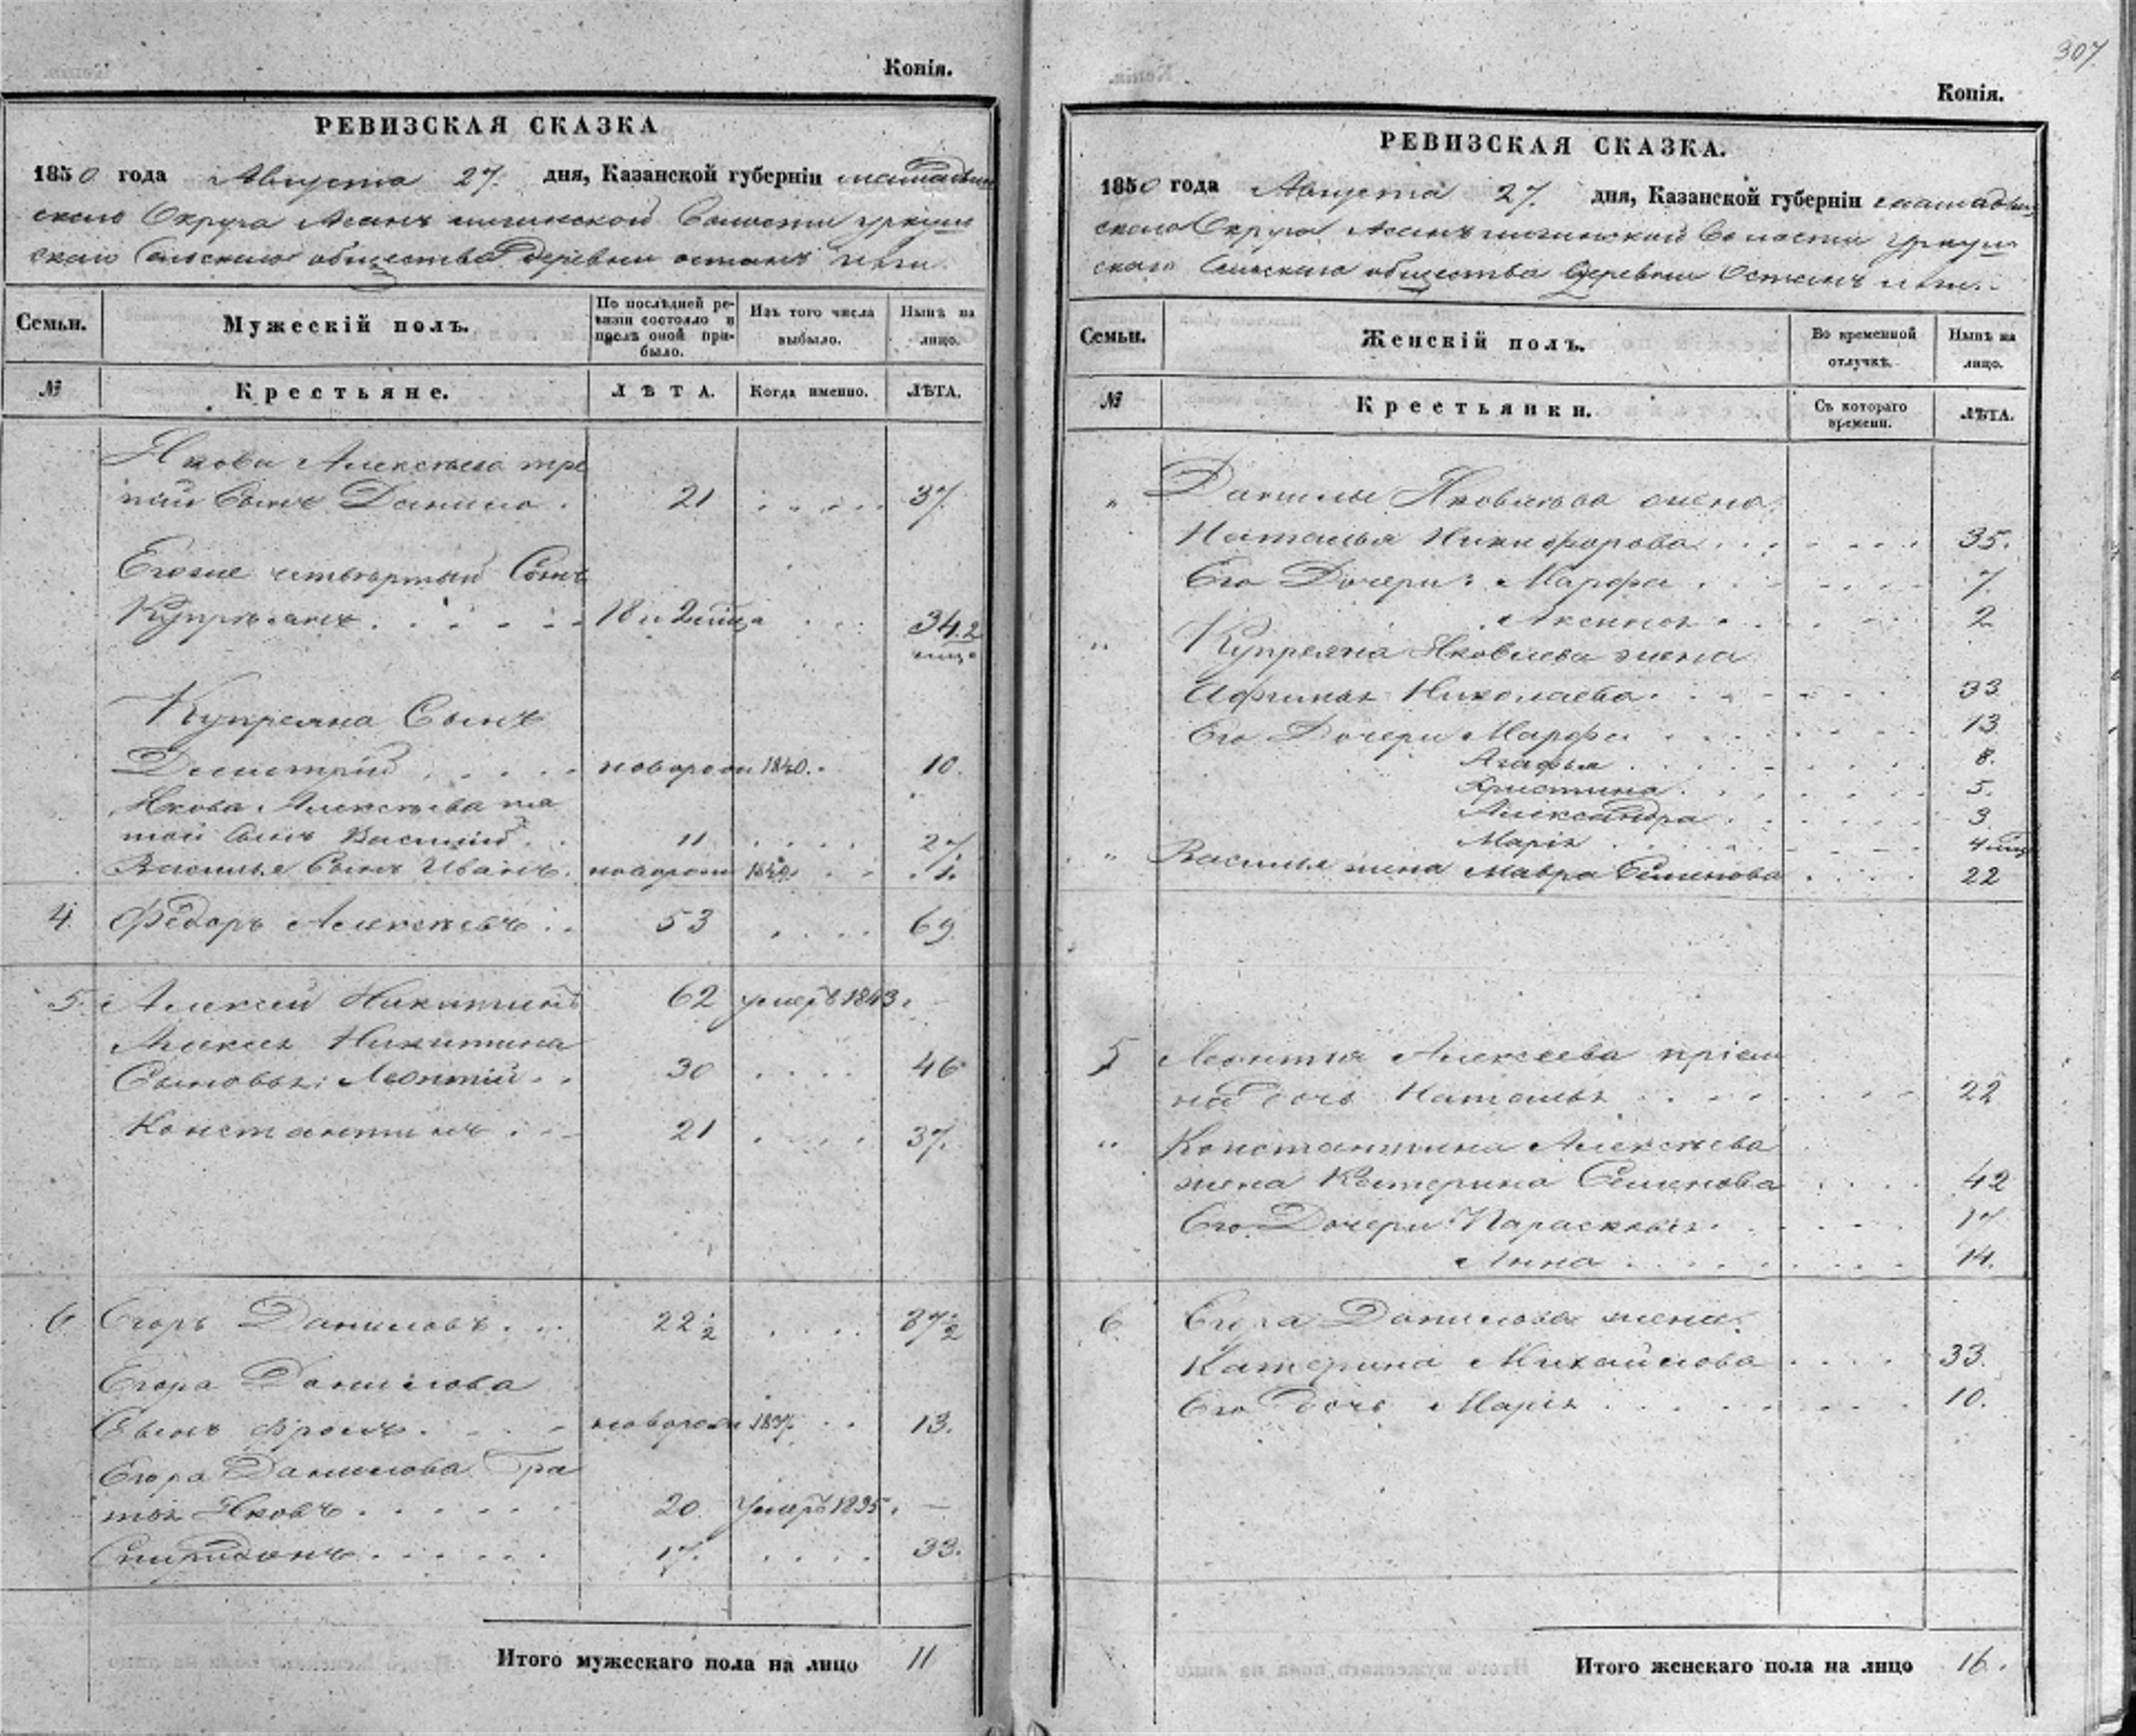 Копія.
РЕВИЗСКАЯ СКАЗКА
1850 года Августа 27. дня, Казанской губерніи мамадыш
скаго Округа волости
скаго Сельскаго общества Деревни
Семьи.
Мужескій полъ.
По послѣдней ре-
визіи состояло и
послѣ оной при-
было.
Изъ того числа
выбыло.
Нынѣ на
лицо.
№
Крестьяне.
ЛѢТА.
Когда именно.
ЛѢТА.
Якова Алексѣева тре
тій Сынъ Данило . 21 . . . . . 37.
Егоже четвертый Сынъ
Купреянъ . . . . . 18 и 2 мѣца . . . 34. 2
мѣца
Купреяна Сынъ
Димитрій . . . . новорожд 1840. . 10.
Якова Алексѣева пя
той сынъ Василій . . 11 . . . . 27
Василье Сынъ Иванъ . новорожд 1849 . . . 1.
4. Фёдоръ Алексѣевъ . . 53 . . . . 69.
5. Алексей Никитинъ 62 умеръ 1843. -
Алексея Никитина
Сыновья: Леонтій . . 30 . . . . 46
Константинъ . . . 21 . . . . 37.
6 Егоръ Даниловъ . . . 22 1/2 . . . . 37 1/2
Егора Данилова
Сынъ Фролъ . . . . новорожд 1837. . . 13.
Егора Данилова Бра
тья Яковъ . . . . . . 20. Умеръ 1835. —
Спиридонъ . . . . . . 17. . . . . 33.
Итого мужескаго пола на лицо 11
307
Копія.
РЕВИЗСКАЯ СКАЗКА.
1850 года Августа 27. дня, Казанской губерніи мамадыш
скаго Округа волости
скаго Сельскаго общества Деревни
Семьи.
Женскій полъ.
Во временной
отлучкѣ.
Нынѣ на
лицо.
№
Крестьянки.
Съ котораго
времени.
ЛѢТА.
„ Данилы Яковлева жена
Наталья Никифорова . . . . . . . 35.
Его Дочери: Марфа . . . . . . . 7.
Аксинья . . . . . . 2
„ Купреяна Яковлева жена
Афимья Николаева . . . . . . 33
Его Дочери Марфа . . . . . . . 13
Агафья . . . . . . . 8.
Христина . . . . . . . 5.
Александра . . . . . . 3
Марія . . . . . . . 4 мѣц
„ Василья жена Мавра Семенова . . . . 22
5 Леонтия Алексеева пріем
на дочь Наталья . . . . . . . 22
„ Константина Алексѣева
жена Катерина Семенова . . . . 42
Его Дочери Парасковья . . . . . . 17
Анна . . . . . . . 14.
6. Егора Данилова жена
Катерина Михайлова . . . . 33.
Его дочь Марія . . . . . . . . 10.
Итого женскаго пола на лицо 16.